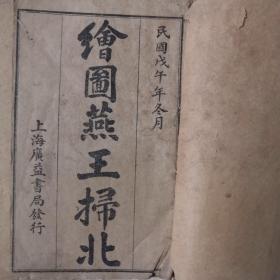 民國戊午年冬月
繪圖燕王掃北
上海廣益書局發行